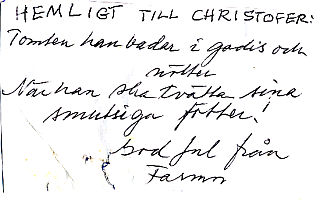 HEMLIGT TILL CHRISTOFER:
Tomten han badar i godis och
nötter
När han ska tvätta sina
smutsiga fötter!
God Jul från
Farmor